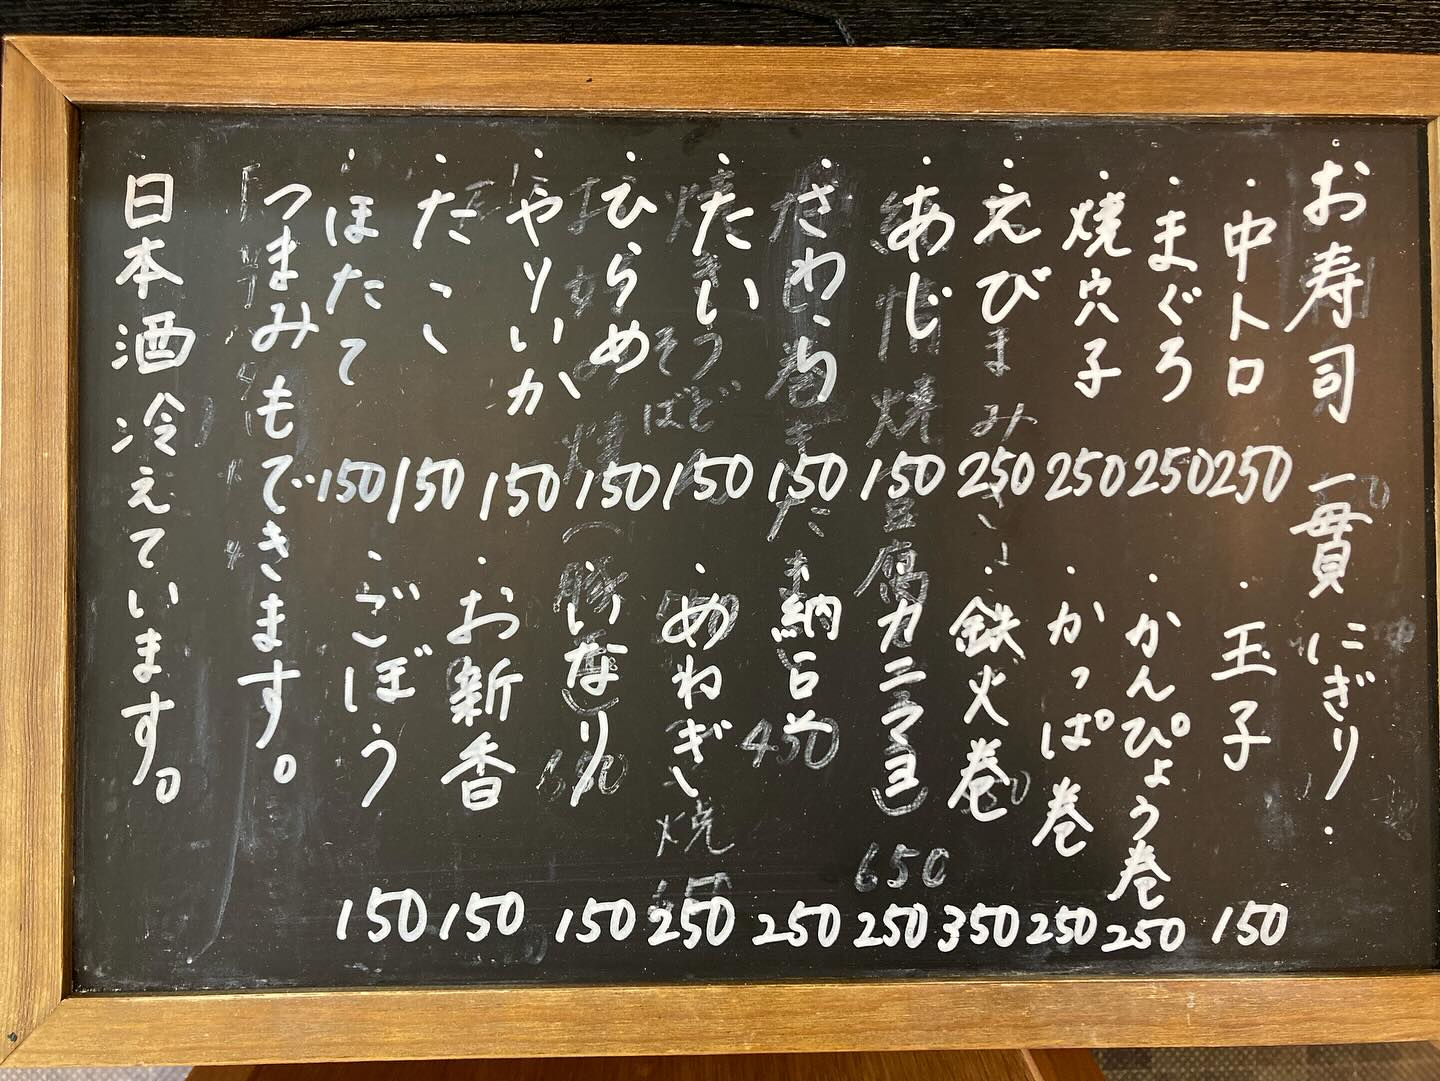 お寿司 一貫 にぎり.
・中トロ 250
・まぐろ 250
・焼穴子 250
・えび 250
・あじ 150
・さわら 150
・たい 150
・ひらめ 150
・やりいか 150
・たこ 150
・ほたて 150
・玉子 150
・かんぴょう巻 250
・かっぱ巻 250
・鉄火巻 350
・カニマヨ 250
・納豆 250
・めねぎ 250
・いなり 150
・お新香 150
・ごぼう 150
つまみもできます。
日本酒 冷えています。